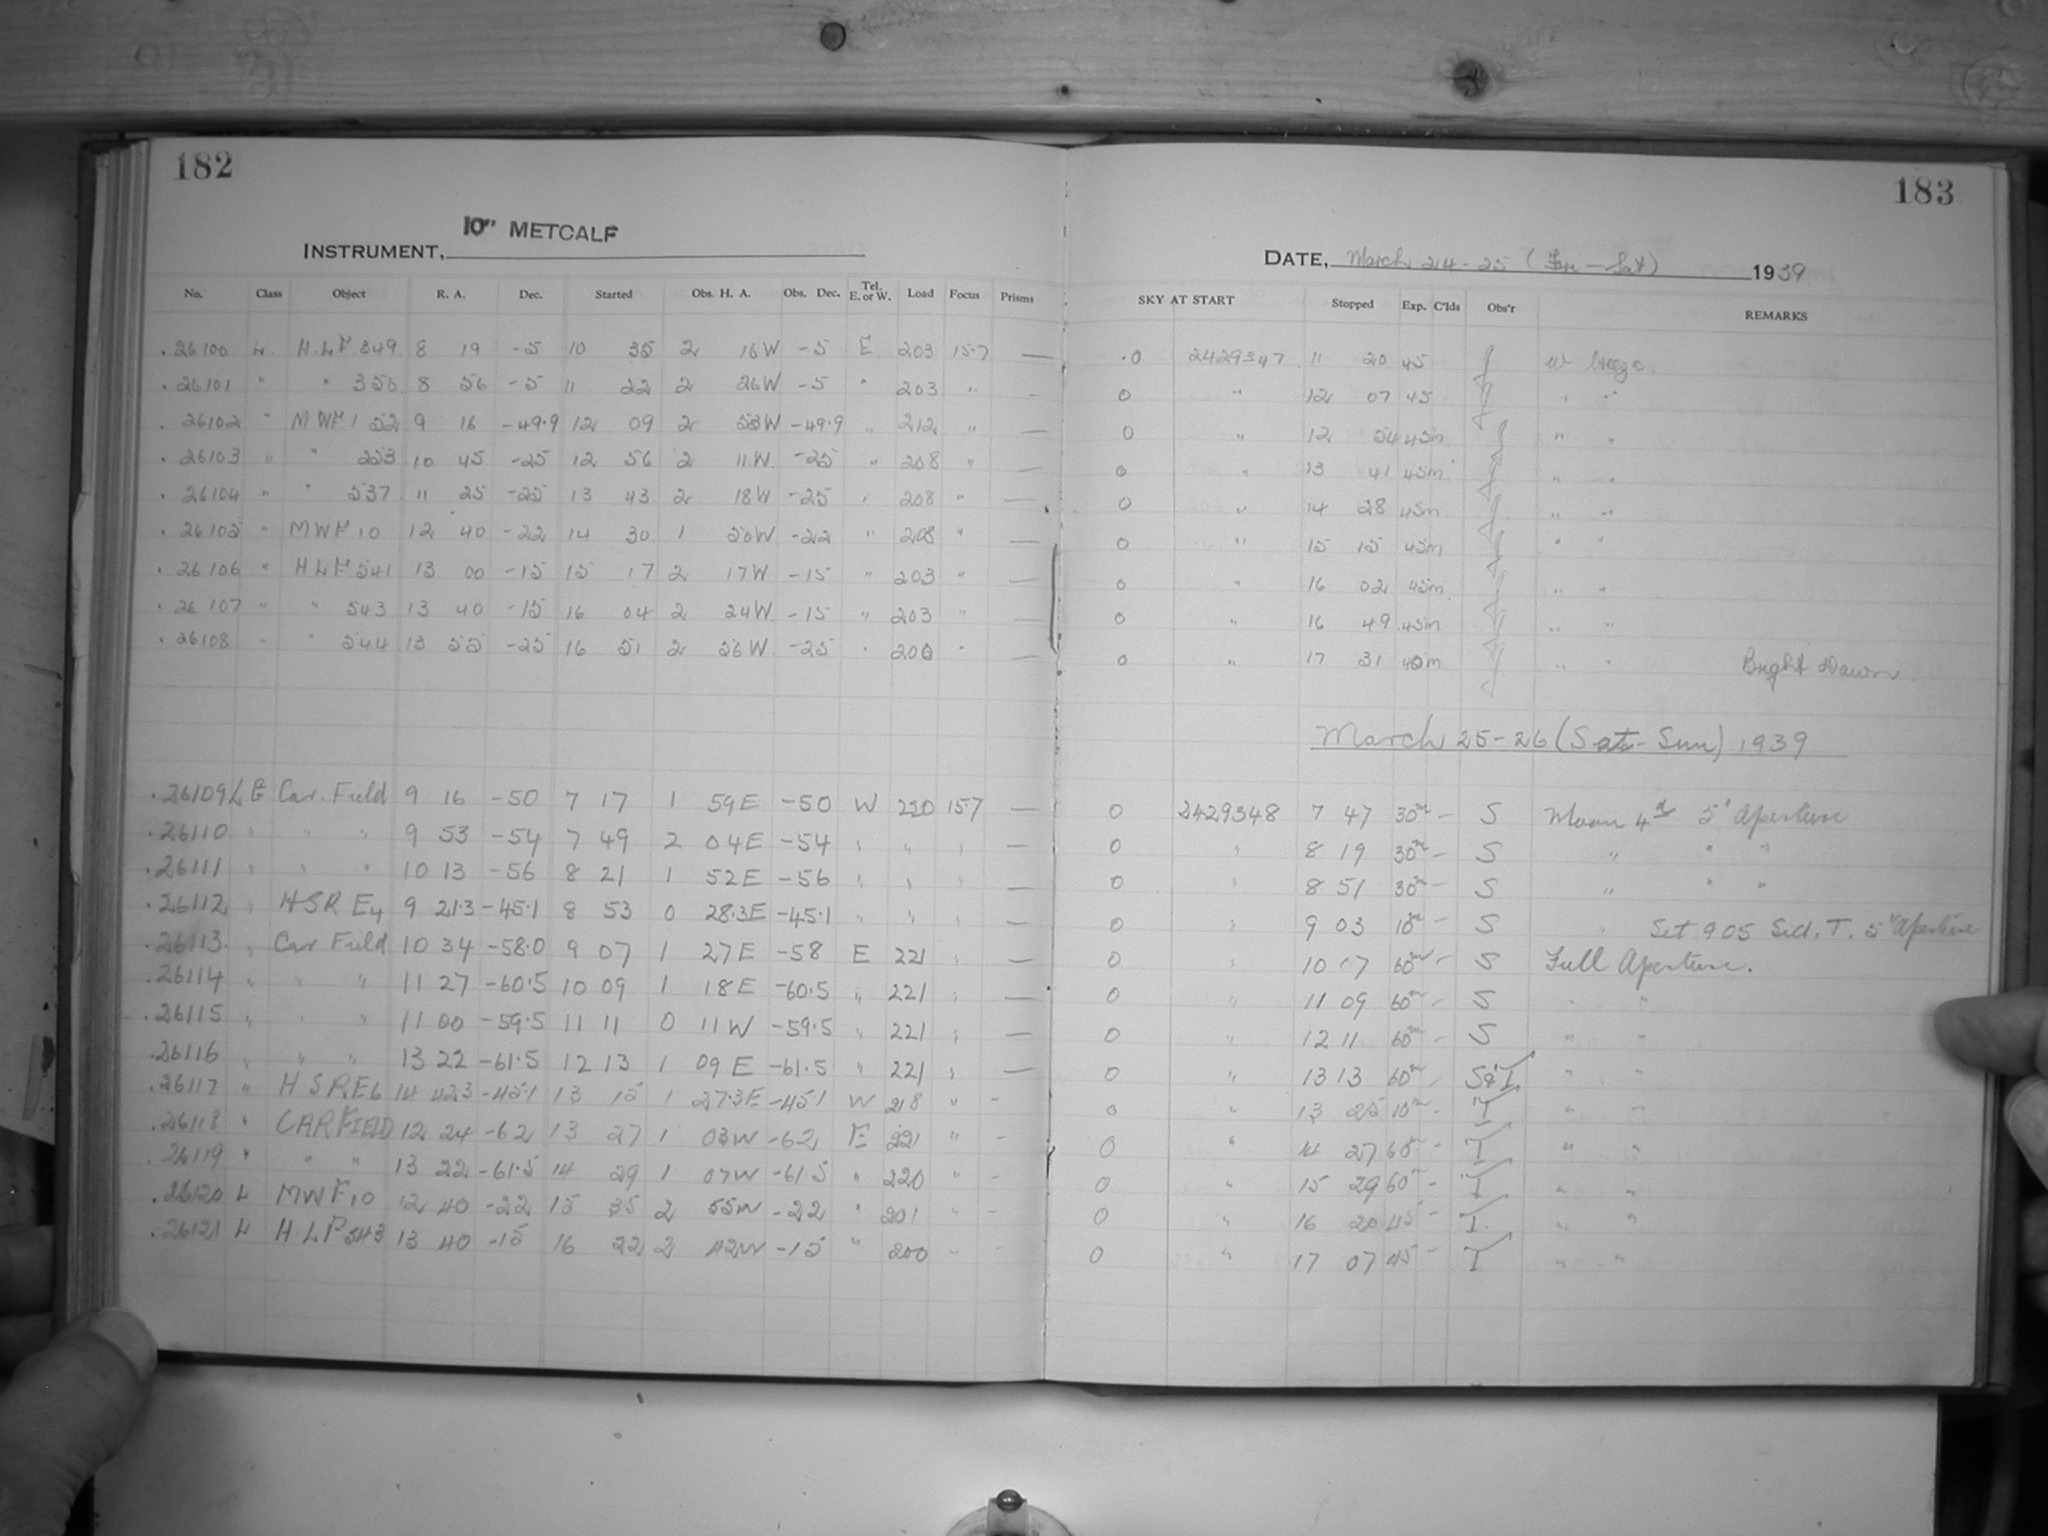 182
10" METCALF
INSTRUMENT,
No. Class Object R. A. Dec. Started Obs. H. A. Obs. Dec. Tel. E. or W. Load Focus Prisms
.26100 L H.L.F. 349 8 19 -5 10 35 2 16W -5 E 203 15.7 —
.26101 " " 350 8 56 -5 11 22 2 26W -5 " 203 "
.26102 " MWF 152 9 16 -49.9 12 09 2 53W -49.9 " 212 " —
.26103 " " 10 45 -25 12 56 2 11W -25 " 208 " —
.26104 " " 537 11 25 -25 13 43 2 18W -25 " 208 " —
.26105 " MWF 10 12 40 -22 14 30 1 50W -22 " 208 " —
.26106 " HLF 541 13 00 -15 15 17 2 17W -15 " 203 " —
.26107 " " 543 13 40 -15 16 04 2 24W -15 " 203 " —
.26108 " " 544 13 55 -25 16 51 2 56W -25 " 200 " —
.26109 L Car. Field 9 16 -50 7 17 1 59E -50 W 220 157 —
.26110 " " " 9 53 -54 7 49 2 04E -54 " " " —
.26111 " " " 10 13 -56 8 21 1 52E -56 " " " —
.26112 " HSR E4 9 21.3 -45.1 8 53 0 28.3E -45.1 " " " —
.26113 " Car Field 10 34 -58.0 9 07 1 27E -58 E 221 " —
.26114 " " " 11 27 -60.5 10 09 1 18E -60.5 " 221 " —
.26115 " " " 11 00 -59.5 11 11 0 11W -59.5 " 221 " —
.26116 " " " 13 22 -61.5 12 13 1 09E -61.5 " 221 " —
.26117 " H S R E6 14 42.3 -45.1 13 15 1 27.3E -45.1 W 218 " -
.26118 " CAR FIELD 12 24 -62 13 27 1 03W -62 E 221 " -
.26119 " " " 13 22 -61.5 14 29 1 07W -61.5 " 220 " -
.26120 L MWF 10 12 40 -22 15 35 2 55W -22 " 201 " -
.26121 L HLF 543 13 40 -15 16 22 2 42W -15 " 200 " -
183
DATE, March 24-25 (Fri - Sat) 1939
SKY AT START Stopped Exp. C'lds Obs'r REMARKS
.0 2429347 11 20 45 W breeze.
0 " 12 07 45 " "
0 " 12 54 45m " "
0 " 13 41 45m " "
0 " 14 28 45m " "
0 " 15 15 45m " "
0 " 16 02 45m " "
0 " 16 49 45m " "
0 " 17 31 40m " " Bright Dawn
March 25-26 (Sat - Sun) 1939
0 2429348 7 47 30m — S Moon 4d 5" Aperture
0 " 8 19 30m — S " " "
0 " 8 51 30m — S " " "
0 " 9 03 10m — S " Set 9 05 Sid. T. 5" Aperture
0 " 10 07 60m - S Full Aperture.
0 " 11 09 60m - S " "
0 " 12 11 60m - S " "
0 " 13 13 60m - S&T " "
0 " 13 25 10m - T " "
0 " 14 27 60m - T " "
0 " 15 29 60m - T " "
0 " 16 20 45 - T " "
0 " 17 07 45 - T " " "